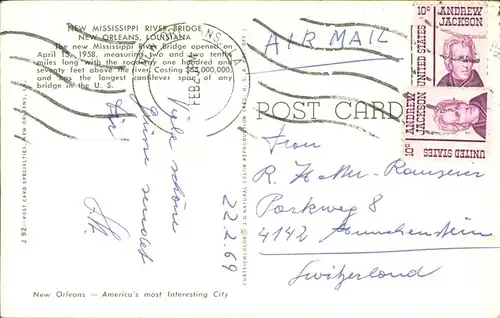 NEW MISSISSIPPI RIVER BRIDGE
NEW ORLEANS, LOUISIANA
The new Mississippi River Bridge opened on
April 15, 1958, measuring two and two tenths
miles long with the roadway one hundred and
seventy feet above the river. Costing $65,000,000
and has the longest cantilever span of any
bridge in the U. S.
Viele schöne
Grüsse sendet
Dir
22.2.69
FEB
J 92—POST CARD SPECIALTIES, NEW ORLEANS, LA.
New Orleans — America's most Interesting City
AIR MAIL
POST CARD
10c ANDREW
JACKSON
UNITED STATES
10c ANDREW
JACKSON
UNITED STATES
Herrn
Parkweg 8
4142 Münchenstein
Switzerland